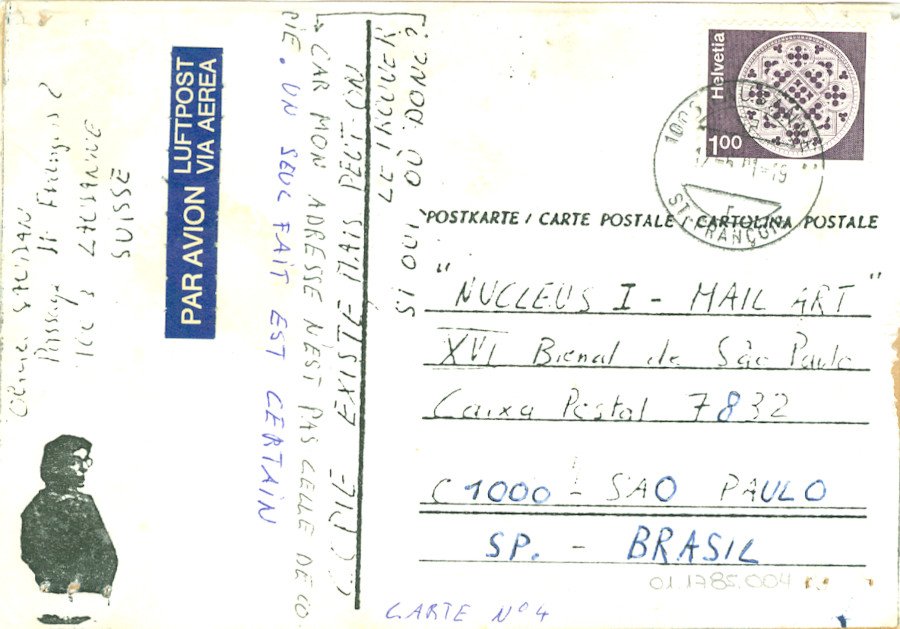 Passage St. François 2
1003 LAUSANNE
SUISSE
PAR AVION
LUFTPOST
VIA AEREA
COPIE EXISTE MAIS PEUT-ON
LE TROUVER
SI OUI OÙ DONC?
CAR MON ADRESSE N'EST PAS CELLE DE CO
PIE. UN SEUL FAIT EST CERTAIN
Helvetia
1.00
ST. FRANÇOIS
POSTKARTE / CARTE POSTALE / CARTOLINA POSTALE
"NUCLEUS I - MAIL ART"
XVI Bienal de São Paulo
Caixa Postal 7832
C1000 - SAO PAULO
SP. - BRASIL
01.1785.004
CARTE N°4